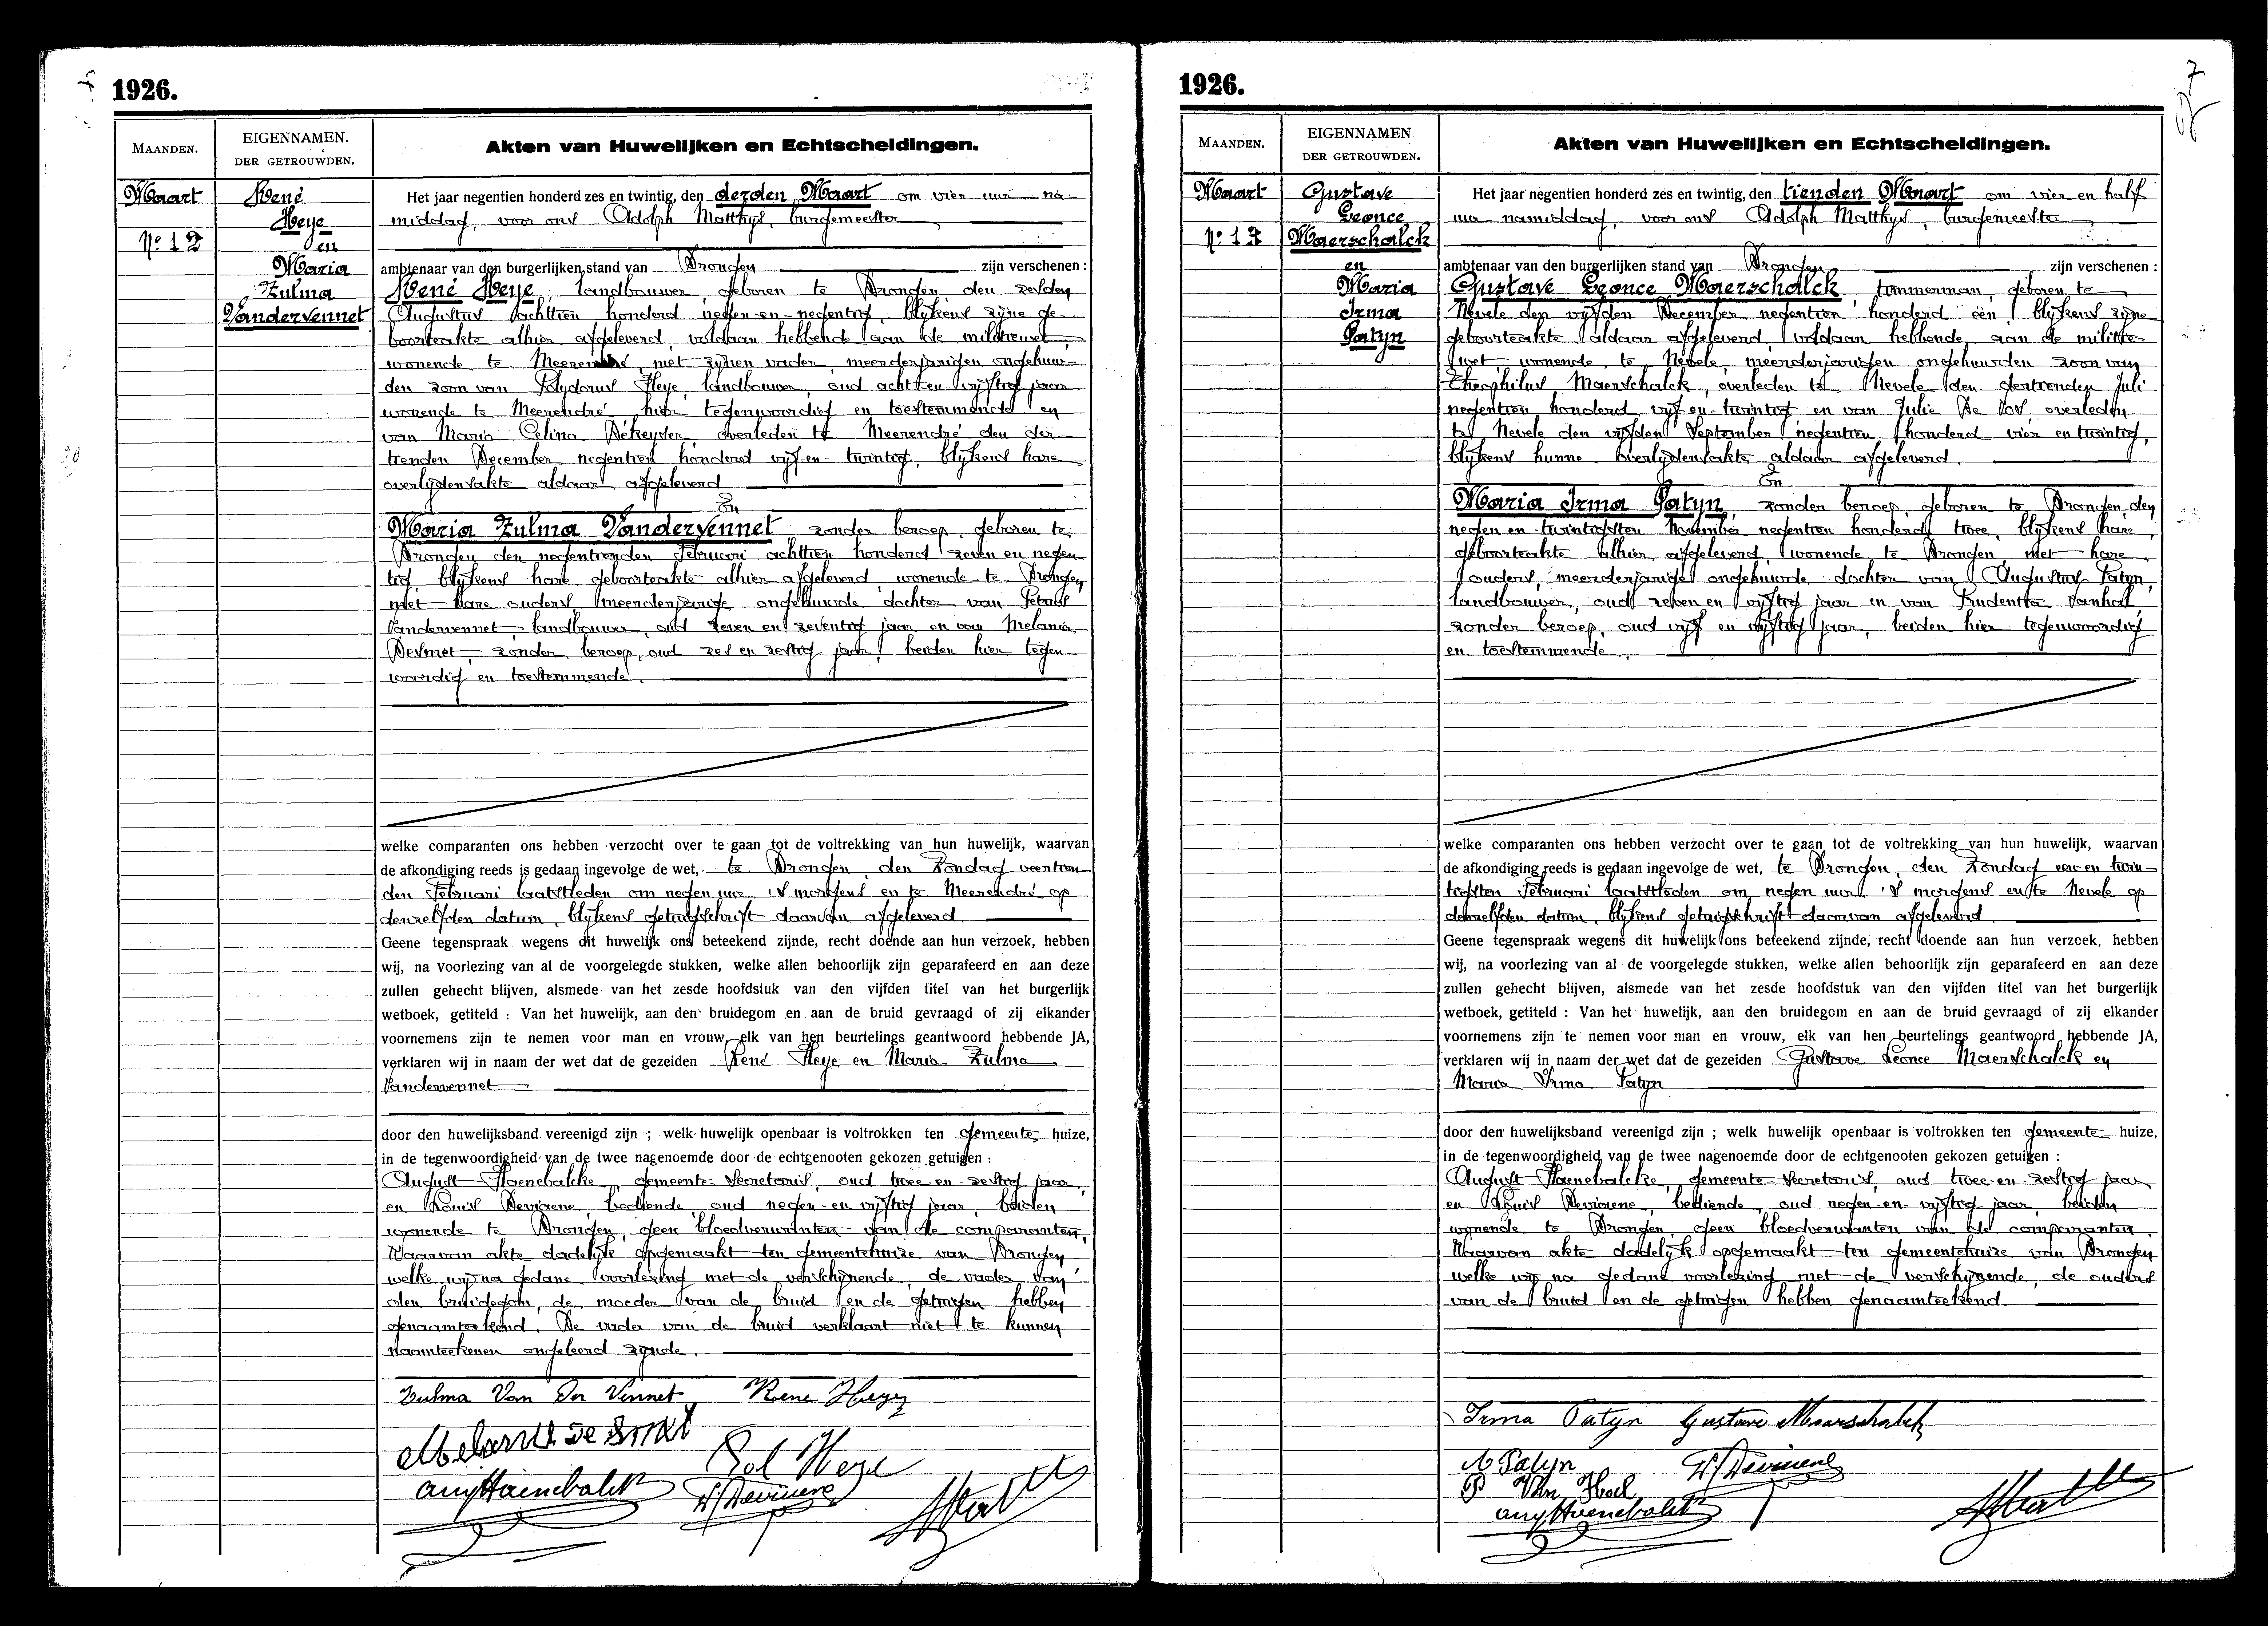 1926.
MAANDEN.
EIGENNAMEN.
DER GETROUWDEN.
Akten van Huwelijken en Echtscheidingen.
Maart
No 12
René
Heye
en
Maria
Zulma
Vandervennet
Het jaar negentien honderd zes en twintig, den derden Maart om vier uur na-
middag, voor ons Adolph Matthys, burgemeester
ambtenaar van den burgerlijken stand van Drongen zijn verschenen :
René Heye, landbouwer, geboren te Drongen den zesden
Augustus achttien honderd negen-en-negentig, blijkens zijne ge-
boorteakte alhier afgeleverd, voldaan hebbende aan de militiewet,
wonende te Meerendré, met zijnen vader, meerderjarigen ongehuw-
den zoon van Polydorus Heye, landbouwer, oud acht-en-vijftig jaar
wonende te Meerendré, hier tegenwoordig en toestemmende en
van Maria Celina Dekeyser, overleden te Meerendré den der-
tienden December negentien honderd vijf-en-twintig, blijkens hare
overlijdensakte aldaar afgeleverd
En
Maria Zulma Vandervennet, zonder beroep, geboren te
Drongen den negentienden Februari achttien honderd zeven en negen-
tig blijkens hare geboorteakte alhier afgeleverd, wonende te Drongen,
met hare ouders meerderjarige ongehuwde dochter van Petrus
Vandervennet, landbouwer, oud zeven en zeventig jaar en van Melania
Desmet, zonder beroep, oud zes en zestig jaar, beiden hier tegen-
woordig en toestemmende.
welke comparanten ons hebben verzocht over te gaan tot de voltrekking van hun huwelijk, waarvan
de afkondiging reeds is gedaan ingevolge de wet, te Drongen, den Zondag veertien-
den Februari laatstleden om negen uur 's morgens en te Meerendré op
denzelfden datum, blijkens getuigschrift daarvan afgeleverd.
Geene tegenspraak wegens dit huwelijk ons beteekend zijnde, recht doende aan hun verzoek, hebben
wij, na voorlezing van al de voorgelegde stukken, welke allen behoorlijk zijn geparafeerd en aan deze
zullen gehecht blijven, alsmede van het zesde hoofdstuk van den vijfden titel van het burgerlijk
wetboek, getiteld : Van het huwelijk, aan den bruidegom en aan de bruid gevraagd of zij elkander
voornemens zijn te nemen voor man en vrouw, elk van hen beurtelings geantwoord hebbende JA,
verklaren wij in naam der wet dat de gezeiden René Heye en Maria Zulma
Vandervennet
door den huwelijksband vereenigd zijn ; welk huwelijk openbaar is voltrokken ten gemeente huize,
in de tegenwoordigheid van de twee nagenoemde door de echtgenooten gekozen getuigen :
August Haenebalcke, gemeente-secretaris, oud twee-en-zestig jaar,
en Louis Deviaene, bediende, oud negen-en-vijftig jaar, beiden
wonende te Drongen, geen bloedverwanten van de comparanten,
Waarvan akte dadelijk opgemaakt ten gemeentehuize van Drongen
welke wij na gedane voorlezing met de verschijnende, de vader van
den bruidegom, de moeder van de bruid en de getuigen hebben
genaamteekend. De vader van de bruid verklaart niet te kunnen
naamteekenen ongeleerd zijnde.
Zulma Van Der Vennet René Heye
Melanie De Smet
Pol Heye
Aug Haenebalcke
1926.
7
MAANDEN.
EIGENNAMEN
DER GETROUWDEN.
Akten van Huwelijken en Echtscheidingen.
Maart
No 13
Gustave
Leonce
Maerschalck
en
Maria
Irma
Patyn
Het jaar negentien honderd zes en twintig, den tienden Maart om vier en half
uur namiddag, voor ons Adolph Matthys, burgemeester
ambtenaar van den burgerlijken stand van Drongen zijn verschenen :
Gustave Leonce Maerschalck, timmerman, geboren te
Nevele den vijfden December negentien honderd één, blijkens zijne
geboorteakte aldaar afgeleverd, voldaan hebbende aan de militie-
wet, wonende te Nevele, meerderjarigen ongehuwden zoon van
Theophilus Maerschalck, overleden te Nevele den zestienden Juli
negentien honderd vijf-en-twintig en van Julie De Vos, overleden
te Nevele den vijfden September negentien honderd vier en twintig,
blijkens hunne overlijdensakte aldaar afgeleverd.
En
Maria Irma Patyn, zonder beroep, geboren te Drongen, den
negen en twintigsten November negentien honderd twee, blijkens hare
geboorteakte alhier afgeleverd, wonende te Drongen met hare
ouders, meerderjarige ongehuwde dochter van Augustus Patyn,
landbouwer, oud zeven en vijftig jaar en van Prudentia Vanhol,
zonder beroep, oud vijf en vijftig jaar, beiden hier tegenwoordig
en toestemmende.
welke comparanten ons hebben verzocht over te gaan tot de voltrekking van hun huwelijk, waarvan
de afkondiging reeds is gedaan ingevolge de wet, te Drongen, den Zondag een en twin-
tigsten Februari laatstleden om negen uur 's morgens en te Nevele op
denzelfden datum, blijkens getuigschrift daarvan afgeleverd.
Geene tegenspraak wegens dit huwelijk ons beteekend zijnde, recht doende aan hun verzoek, hebben
wij, na voorlezing van al de voorgelegde stukken, welke allen behoorlijk zijn geparafeerd en aan deze
zullen gehecht blijven, alsmede van het zesde hoofdstuk van den vijfden titel van het burgerlijk
wetboek, getiteld : Van het huwelijk, aan den bruidegom en aan de bruid gevraagd of zij elkander
voornemens zijn te nemen voor man en vrouw, elk van hen beurtelings geantwoord hebbende JA,
verklaren wij in naam der wet dat de gezeiden Gustave Leonce Maerschalck en
Maria Irma Patyn
door den huwelijksband vereenigd zijn ; welk huwelijk openbaar is voltrokken ten gemeente huize,
in de tegenwoordigheid van de twee nagenoemde door de echtgenooten gekozen getuigen :
August Haenebalcke, gemeente-secretaris, oud twee-en-zestig jaar
en Louis Deviaene, bediende, oud negen-en-vijftig jaar, beiden
wonende te Drongen, geen bloedverwanten van de comparanten.
Waarvan akte dadelijk opgemaakt ten gemeentehuize van Drongen
welke wij na gedane voorlezing met de verschijnende, de ouders
van de bruid en de getuigen hebben genaamteekend.
Irma Patyn Gustave Maerschalck
A Patyn
P Van Hol
Aug Haenebalcke